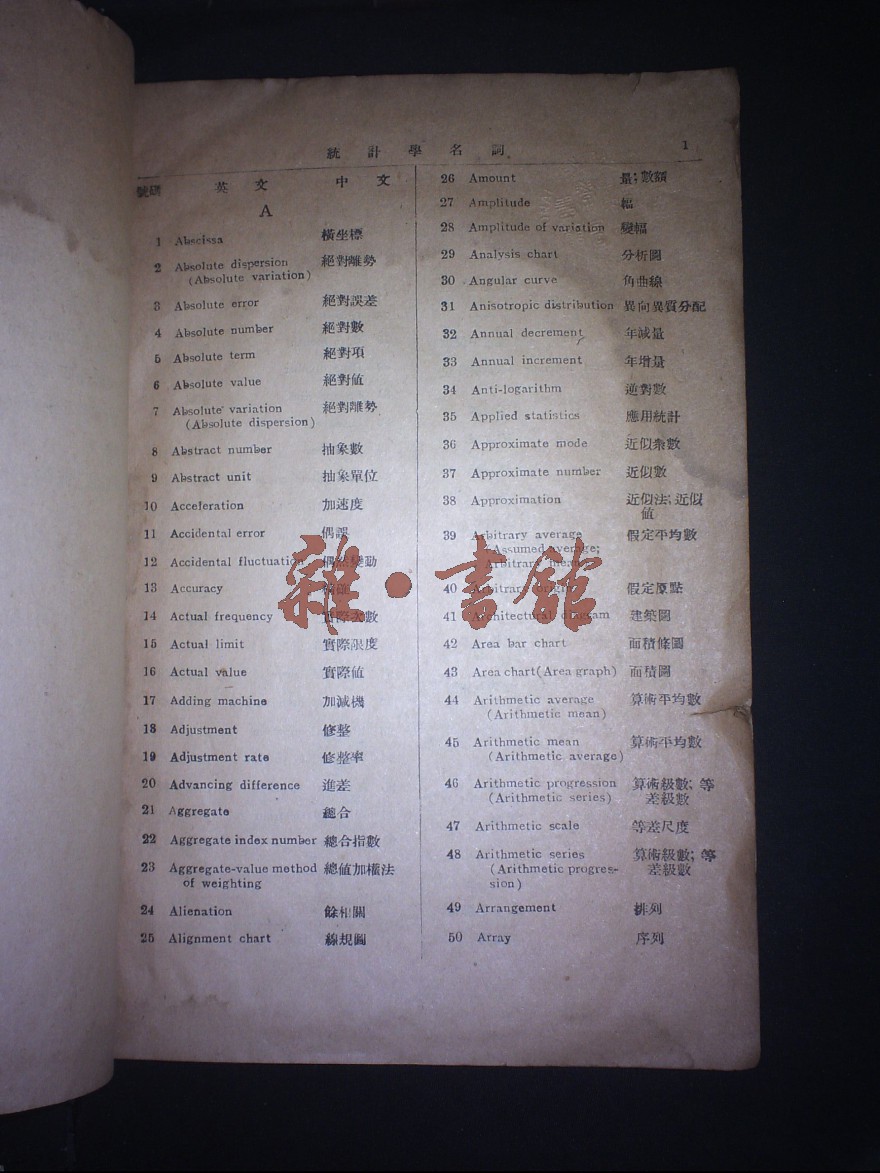 統計學名詞 1
號碼 英文 中文
A
1 Abscissa 橫坐標
2 Absolute dispersion 絕對離勢
(Absolute variation)
3 Absolute error 絕對誤差
4 Absolute number 絕對數
5 Absolute term 絕對項
6 Absolute value 絕對値
7 Absolute variation 絕對離勢
(Absolute dispersion)
8 Abstract number 抽象數
9 Abstract unit 抽象單位
10 Acceleration 加速度
11 Accidental error 偶誤
12 Accidental fluctuation 偶然變動
13 Accuracy
14 Actual frequency 實際次數
15 Actual limit 實際限度
16 Actual value 實際値
17 Adding machine 加減機
18 Adjustment 修整
19 Adjustment rate 修整率
20 Advancing difference 進差
21 Aggregate 總合
22 Aggregate index number 總合指數
23 Aggregate-value method 總値加權法
of weighting
24 Alienation 餘相關
25 Alignment chart 線規圖
26 Amount 量;數額
27 Amplitude 幅
28 Amplitude of variation 變幅
29 Analysis chart 分析圖
30 Angular curve 角曲線
31 Anisotropic distribution 異向異質分配
32 Annual decrement 年減量
33 Annual increment 年增量
34 Anti-logarithm 逆對數
35 Applied statistics 應用統計
36 Approximate mode 近似衆數
37 Approximate number 近似數
38 Approximation 近似法;近似
値
39 Arbitrary average 假定平均數
(Assumed average;
Arbitrary mean)
40 Arbitrary origin 假定原點
41 Architectural diagram 建築圖
42 Area bar chart 面積條圖
43 Area chart(Area graph) 面積圖
44 Arithmetic average 算術平均數
(Arithmetic mean)
45 Arithmetic mean 算術平均數
(Arithmetic average)
46 Arithmetic progression 算術級數;等
(Arithmetic series) 差級數
47 Arithmetic scale 等差尺度
48 Arithmetic series 算術級數;等
(Arithmetic progres- 差級數
sion)
49 Arrangement 排列
50 Array 序列
雜·書館